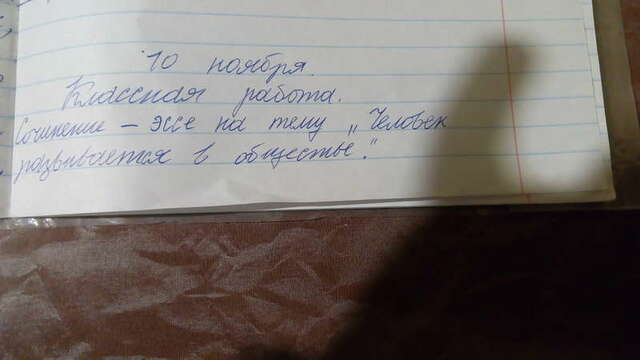 10 ноября.
Классная работа.
Сочинение – эссе на тему „Человек
развивается в обществе."